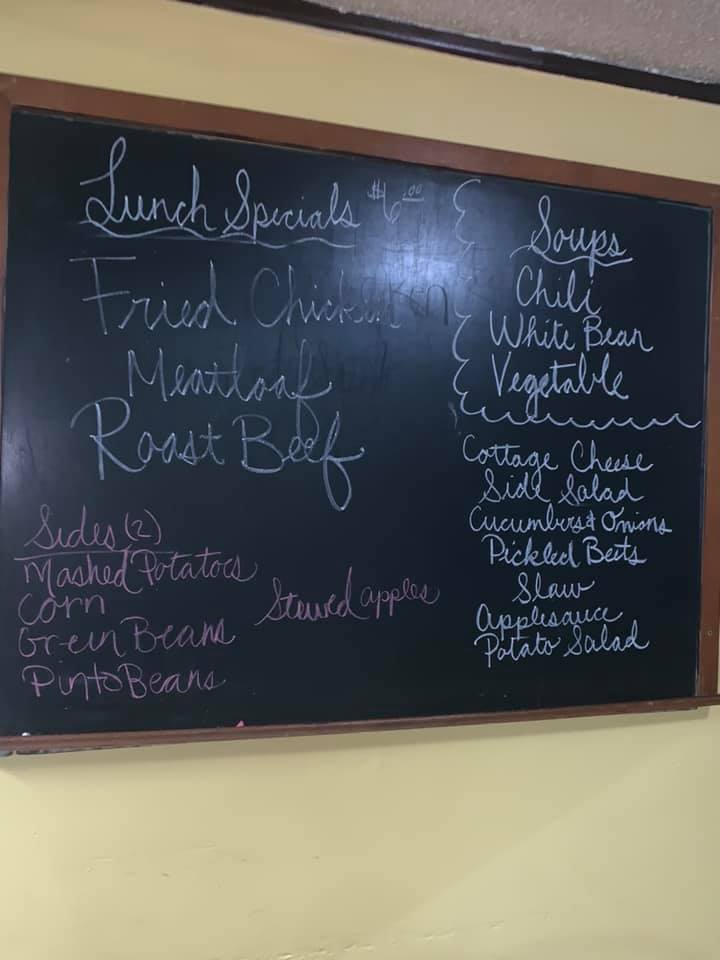 Lunch Specials $6.00
Fried Chicken
Meatloaf
Roast Beef
Sides (2)
Mashed Potatoes
Corn
Green Beans
Pinto Beans
Stewed apples
Soups
Chili
White Bean
Vegetable
Cottage Cheese
Side Salad
Cucumbers & Onions
Pickled Beets
Slaw
Applesauce
Potato Salad